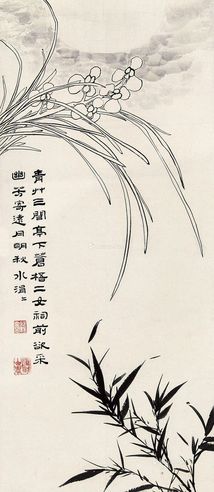 青艸三閭亭下蒼梧二女祠前欲采
幽芳寄遠月明秋水涓〻